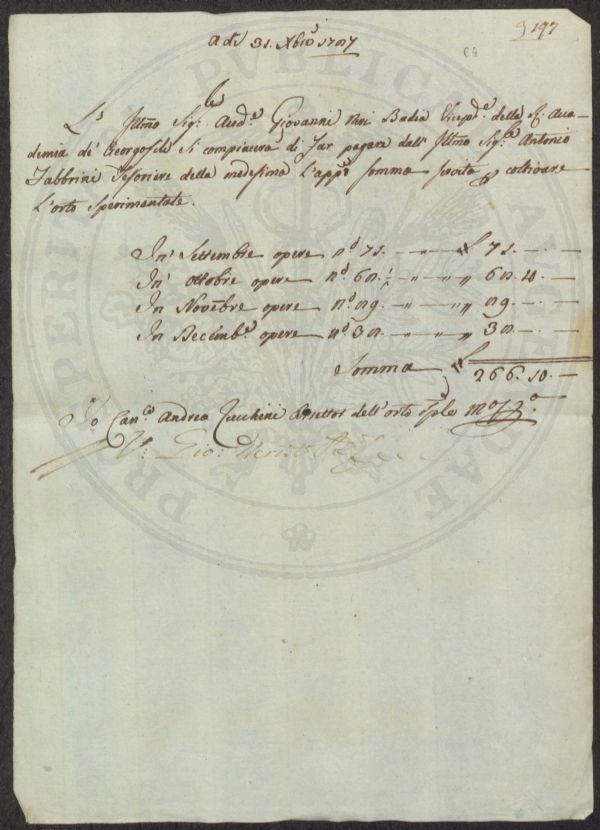 197
64
Adì 31. Xbre 1787
L' Illmo Sig:re Aud:re Giovanni Neri Badia Vicepd:e della R. Acca-
demia de' Georgofili Si compiacerà di far pagare dall' Illmo Sig:re Antonio
Fabbrini Tesoriere della medesima L'app:a somma servita p coltivare
L'orto Sperimentale.
In Settembre opere n:o 71. — — £ 71. — —
In Ottobre opere n:o 68 1/2 — „ 68. 10. —
In Novēbre opere n:o 89 — — „ 89. — —
In Decēmb:e opere n:o 38. — — „ 38. — —
Somma £ 266. 10. —
Io Can:co Andrea Zucchini Direttor dell'orto Sple Mo Po
V: Gio: Neri
PROSPERITATI PVBLICAE AVGENDAE